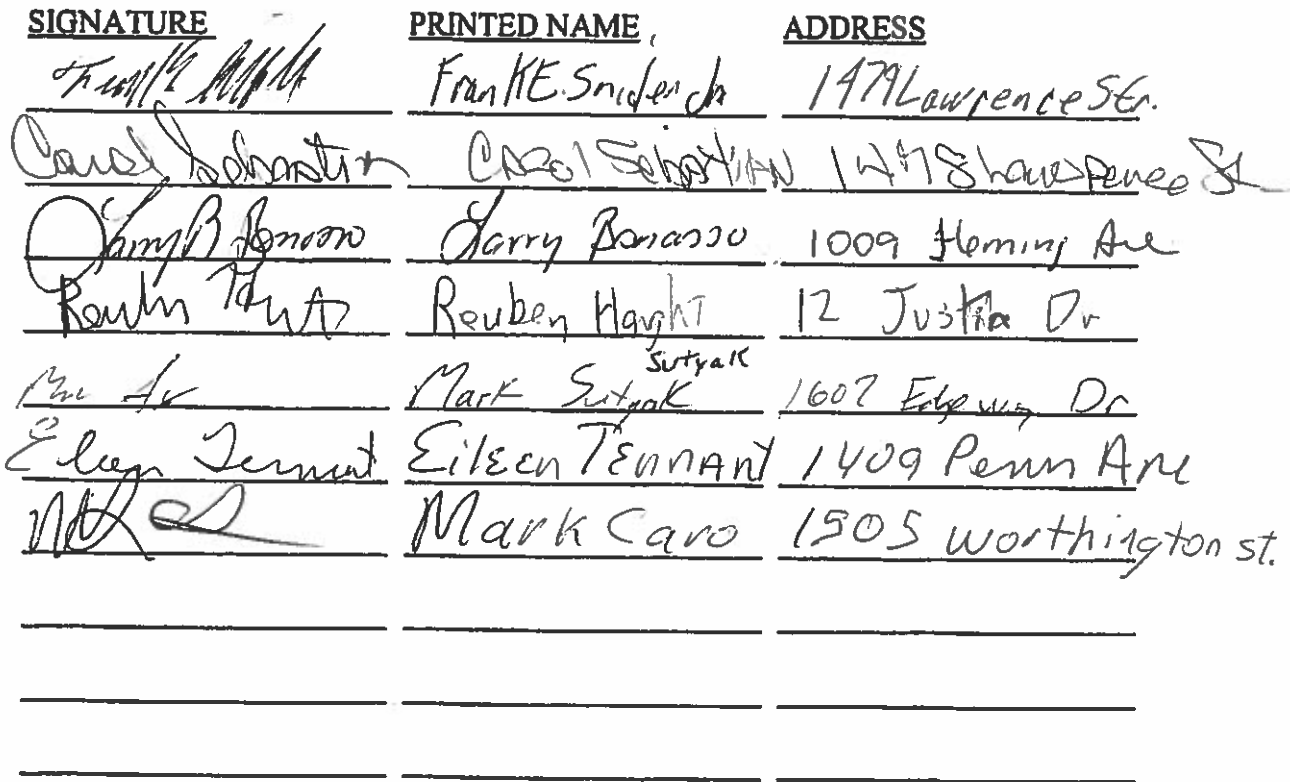 SIGNATURE PRINTED NAME ADDRESS
Frank E. Snider Jr 1479 Lawrence Str.
Carol Sebastian Carol Sebastian St
Larry B Bonasso Larry Bonasso 1009 Fleming Ave
Reuben Haught Reuben Haught 12 Justin Dr
Sutyak
Mark Sutyak 1607 Edgeway Dr
Eileen Tennant Eileen Tennant 1409 Penn Ave
Mark Caro 1505 Worthington st.